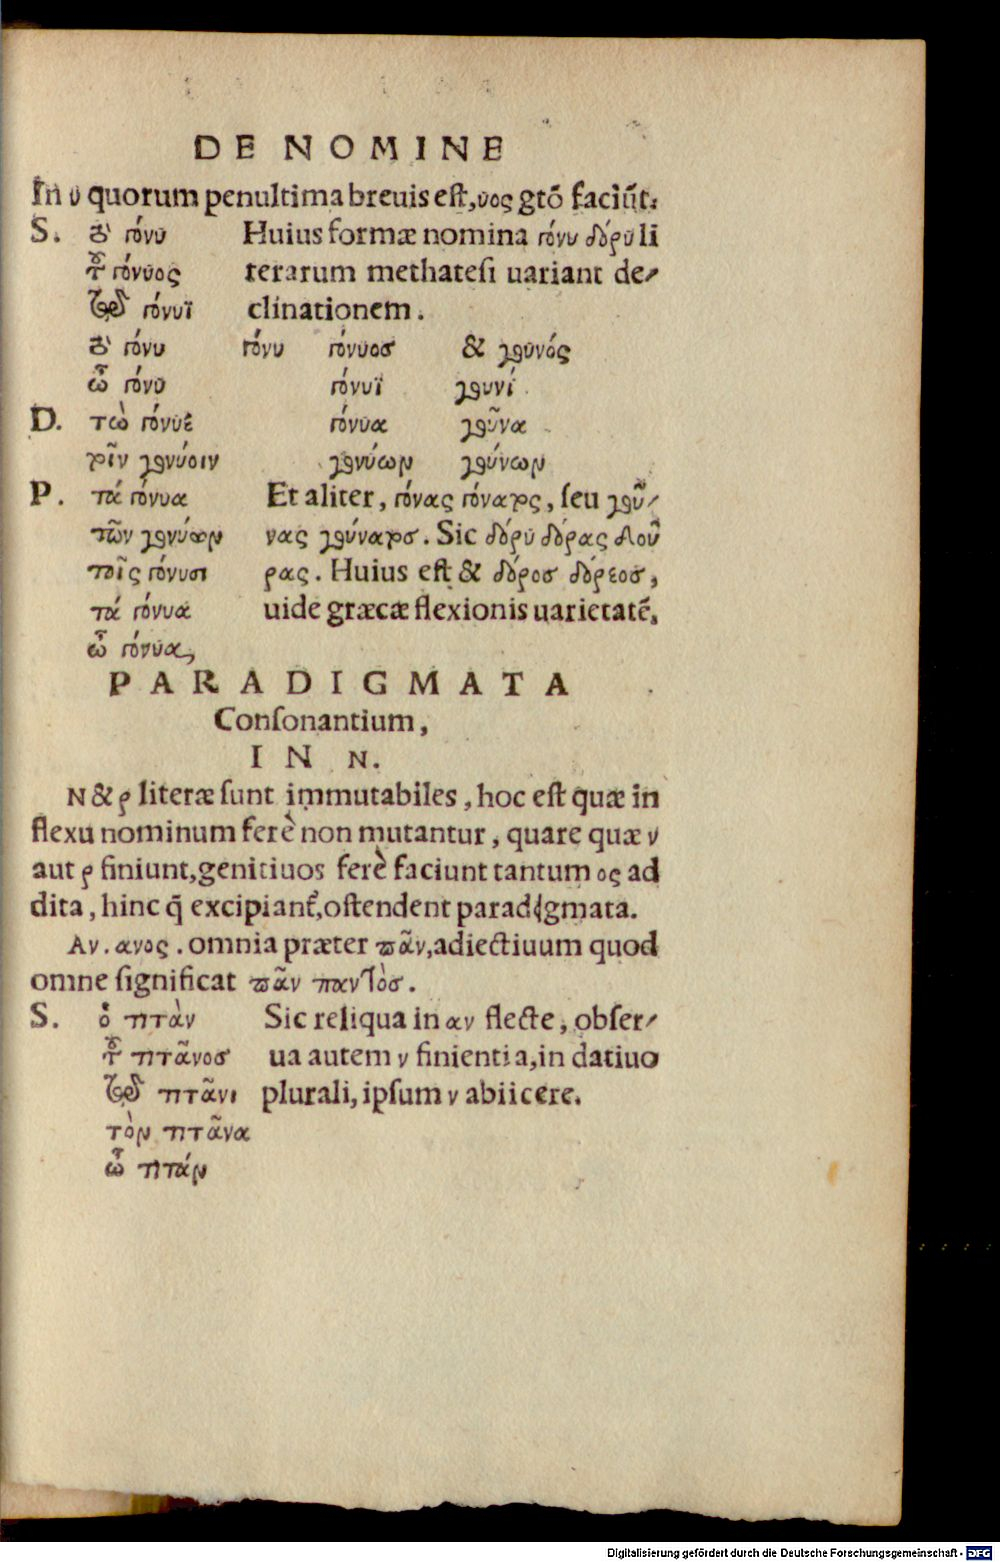 DE NOMINE
In υ quorum penultima breuis est, υος gtō faciūt.
S. τὸ γόνυ Huius formæ nomina γόνυ δόρυ li
τοῦ γόνυος terarum methatesi uariant de⸗
τῷ γόνυϊ clinationem.
τὸ γόνυ γόνυ γόνυοσ & γουνός
ὦ γόνυ γόνυϊ γουνί
D. τὼ γόνυε γόνυα γοῦνα
τοῖν γονύοιν γονύων γούνων
P. τά γόνυα Et aliter, γόνας γόνατος, seu γοῦ⸗
τῶν γονύων νας γούνατοσ. Sic δόρυ δόρας δου
τοῖς γόνυσι ρας. Huius est & δόροσ δόρεοσ,
τά γόνυα uide græcæ flexionis uarietatē.
ὦ γόνυα,
PARADIGMATA
Consonantium,
IN N.
N & ρ literæ sunt immutabiles, hoc est quæ in
flexu nominum ferè non mutantur, quare quæ ν
aut ρ finiunt, genitiuos ferè faciunt tantum ος ad
dita, hinc q̄ excipiant̃, ostendent paradigmata.
Αν. ανος. omnia præter πᾶν, adiectiuum quod
omne significat πᾶν παντὸσ.
S. ὁ πτὰν Sic reliqua in αν flecte, obser⸗
τοῦ πτᾶνοσ ua autem ν finientia, in datiuo
τῷ πτᾶνι plurali, ipsum ν abiicere.
τὸν πτᾶνα
ὦ πτάν
Digitalisierung gefördert durch die Deutsche Forschungsgemeinschaft - DFG